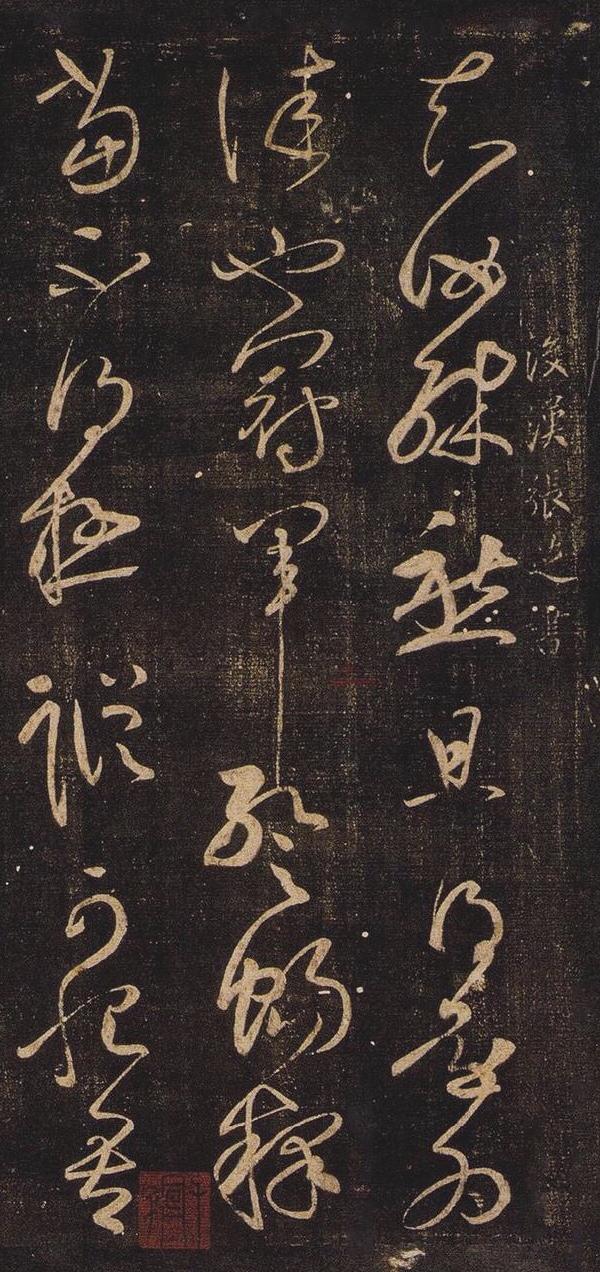 後漢張芝書
知汝殊愁且得還為
佳也冠軍暫暢釋
當不得極蹤可恨吾